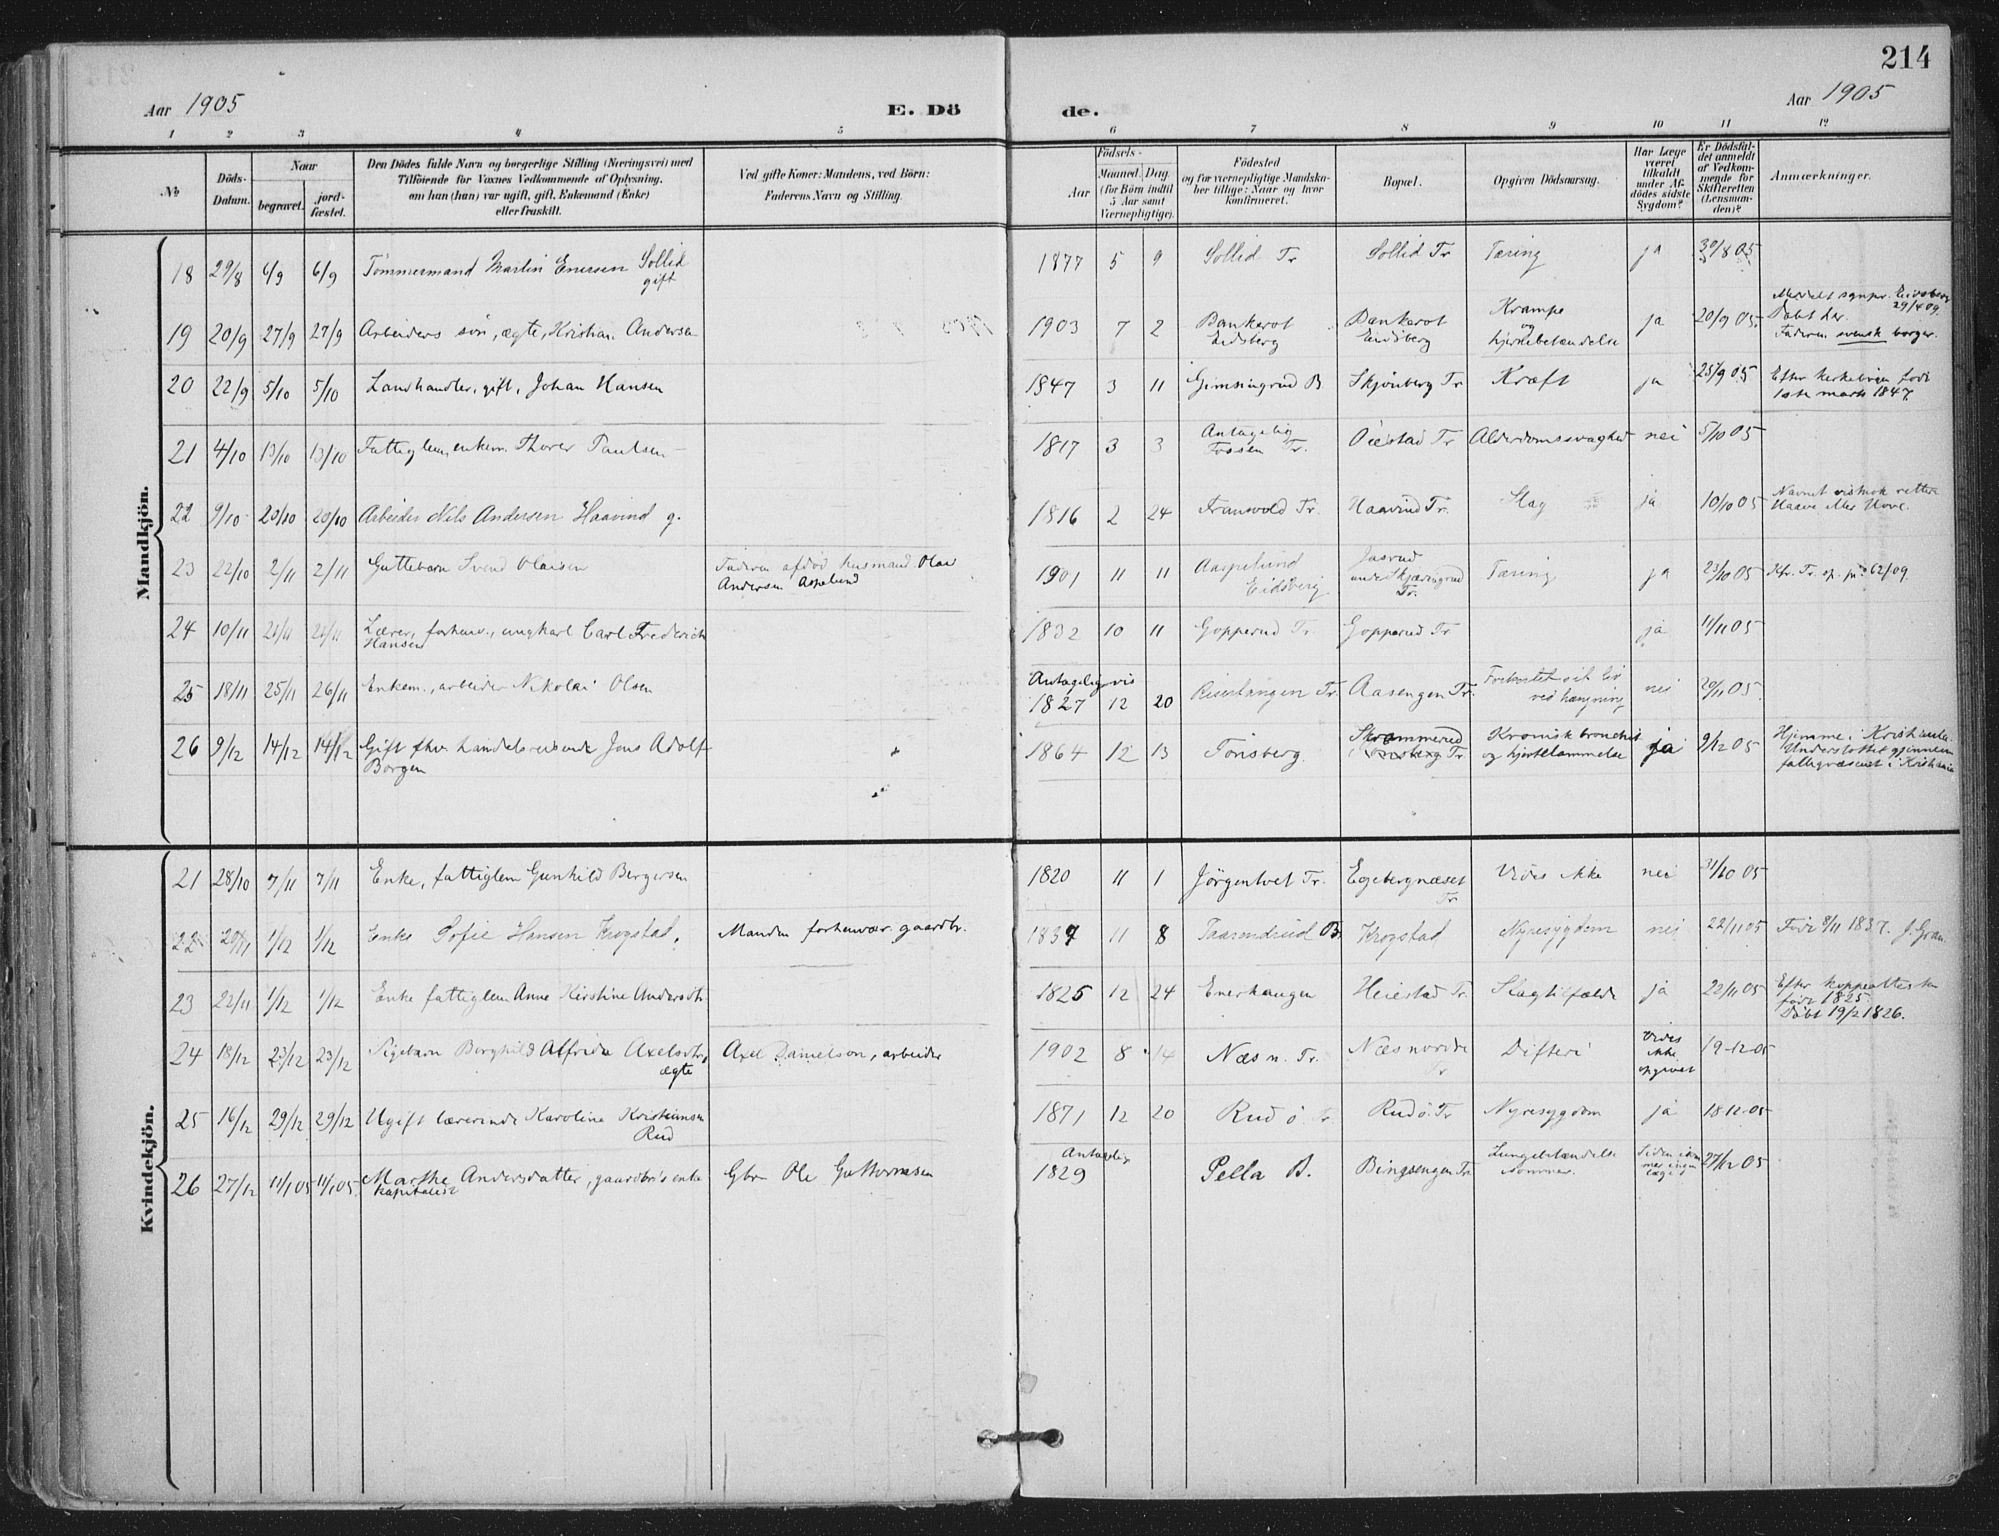 214
Aar 1905
E. Dö
de.
Aar 1905
1 2 3 4 5 6 7 8 9 10 11 12
No
Döds-Datum.
Naar
begravet.
jord-fæstet.
Den Dödes fulde Navn og borgerlige Stilling (Næringsvei) med
Tilföiende for Voxnes Vedkommende af Oplysning,
om han (hun) var ugift, gift, Enkemand (Enke)
eller fraskilt.
Ved gifte Koner: Mandens, ved Börn:
Faderens Navn og Stilling.
Födsels-
Aar
Maaned. Dag.
(for Börn indtil
5 Aar samt
Værnepligtige).
Födested
og for værnepligtige Mandska-
ber tillige: Naar og hvor
konfirmeret.
Bopæl.
Opgiven Dödsaarsag.
Har Læge
været
tilkaldt
under Af-
dödes sidste
Sygdom?
Er Dödsfal-
det anmeldt
af Vedkom-
mende for
Skifteretten
(Lensman-
den)?
Anmærkninger.
Mandkjön.
18 29/8 6/9 6/9 Tömmermand Martin Enersen Sollid gift 1877 5 9 Sollid Tr Sollid Tr Tæring ja 30/8 05
19 20/9 27/9 27/9 Arbeiders sön, ægte, Kristian Andersen 1903 7 2 Bankerot Eidsberg Bankerot Eidsberg Krampe og hjernebetændelse ja 20/9 05. Meldt sognepr. Eidsberg 29/4 09. Döbt her. Faderen svensk borger.
20 22/9 5/10 5/10 Landhandler, gift, Johan Hansen 1847 3 11 Gimsingrud B Skjönberg Tr Kræft ja 25/9 05 Efter kirkebogen födt 1ste marts 1847.
21 4/10 13/10 13/10 Fattiglem, enkem. Thorer Paulsen 1817 3 3 Antagelig Fossen Tr. Öiestad Tr Alderdomssvaghed nei 5/10 05
22 9/10 20/10 20/10 Arbeider Nils Andersen Haavind g. 1816 2 24 Transvold Tr. Haavind Tr. Slag ja 10/10 05 Navnet vistnok rettere Haave eller Hove.
23 22/10 2/11 2/11 Guttebarn Svend Olaisen Faderen afdöd husmand Olai Andersen Aspelund 1901 11 11 Aaspelund Eidsberg Jasrud under Skjæringrud Tr. Tæring ja 23/10 05 62/09.
24 10/11 21/11 21/11 Lærer, forhenv., ungkarl Carl Frederich Hansen 1832 10 11 Gopperud Tr. Gopperud Tr ja 11/11 05
25 18/11 25/11 26/11 Enkem., arbeider Nikolai Olsen Antageligvis 1827 12 20 Risertangen Tr. Aasengen Tr. Forkortet sit liv ved hængning nei 20/11 05.
26 9/12 14/12 14/12 Gift fhv. handelsreisende Jens Adolf Borgen 1864 12 13 Tönsberg Skrammerud Tr Kronisk bronchit og hjertelammelse ja 9/12 05 Hjemme i Kristiania. Understöttet gjennem fattigvæsenet i Kristiania
Kvindekjön.
21 28/10 7/11 7/11 Enke, fattiglem Gunhild Bergersen 1820 11 1 Jörgentvet Tr. Egebergnæset Tr Vides ikke nei 31/10 05
22 20/11 1/12 1/12 Enke Sofie Hansen Krogstad. Manden forhenvær. gaardbr. 1837 11 8 Taarendrud B. Krogstad Nyresygdom nei 22/11 05 Födt 8/11 1837. J. Gran
23 22/11 1/12 1/12 Enke fattiglem Anne Kirstine Andersdtr 1825 12 24 Enerhaugen Heiestad Tr. Slagtilfælde ja 22/11 05 Efter koppeattesten födt 1825 Döbt 19/2 1826.
24 18/12 23/12 23/12 Pigebarn Borghild Alfrida Axelsdtr, ægte Axel Danielson, arbeider 1902 8 14 Næs n. Tr. Næs nordre Tr Difteri Vides ikke opgivet 19-12-05
25 16/12 29/12 29/12 Ugift lærerinde Karoline Kristiansen Rud 1871 12 20 Rud ö. Tr. Rud ö. Tr Nyresygdom ja 18-12-05
26 27/12 11/1 05 11/1 05. Marthe Andersdatter, gaardbr's enke kapitalist Gbr. Ole Guttormsen Antagelig 1829 Pella B. Bingsengen Tr. Lungebetændelse 27/12 05